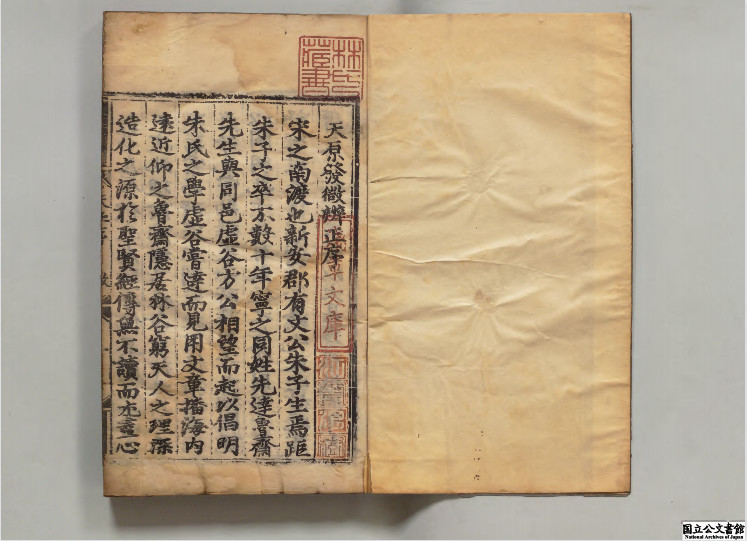 天原發微辨正序
宋之南渡也新安郡有文公朱子生焉距
朱子之卒不數十年寧之同姓先達魯齋
先生與同邑虛谷方公相望而起以倡明
朱氏之學虛谷嘗達而見用文章播海內
遠近仰之魯齋隱居林谷窮天人之理深
造化之源於聖賢經傳無不讀而亦盡心
林氏藏書
文庫
国立公文書館
National Archives of Japan